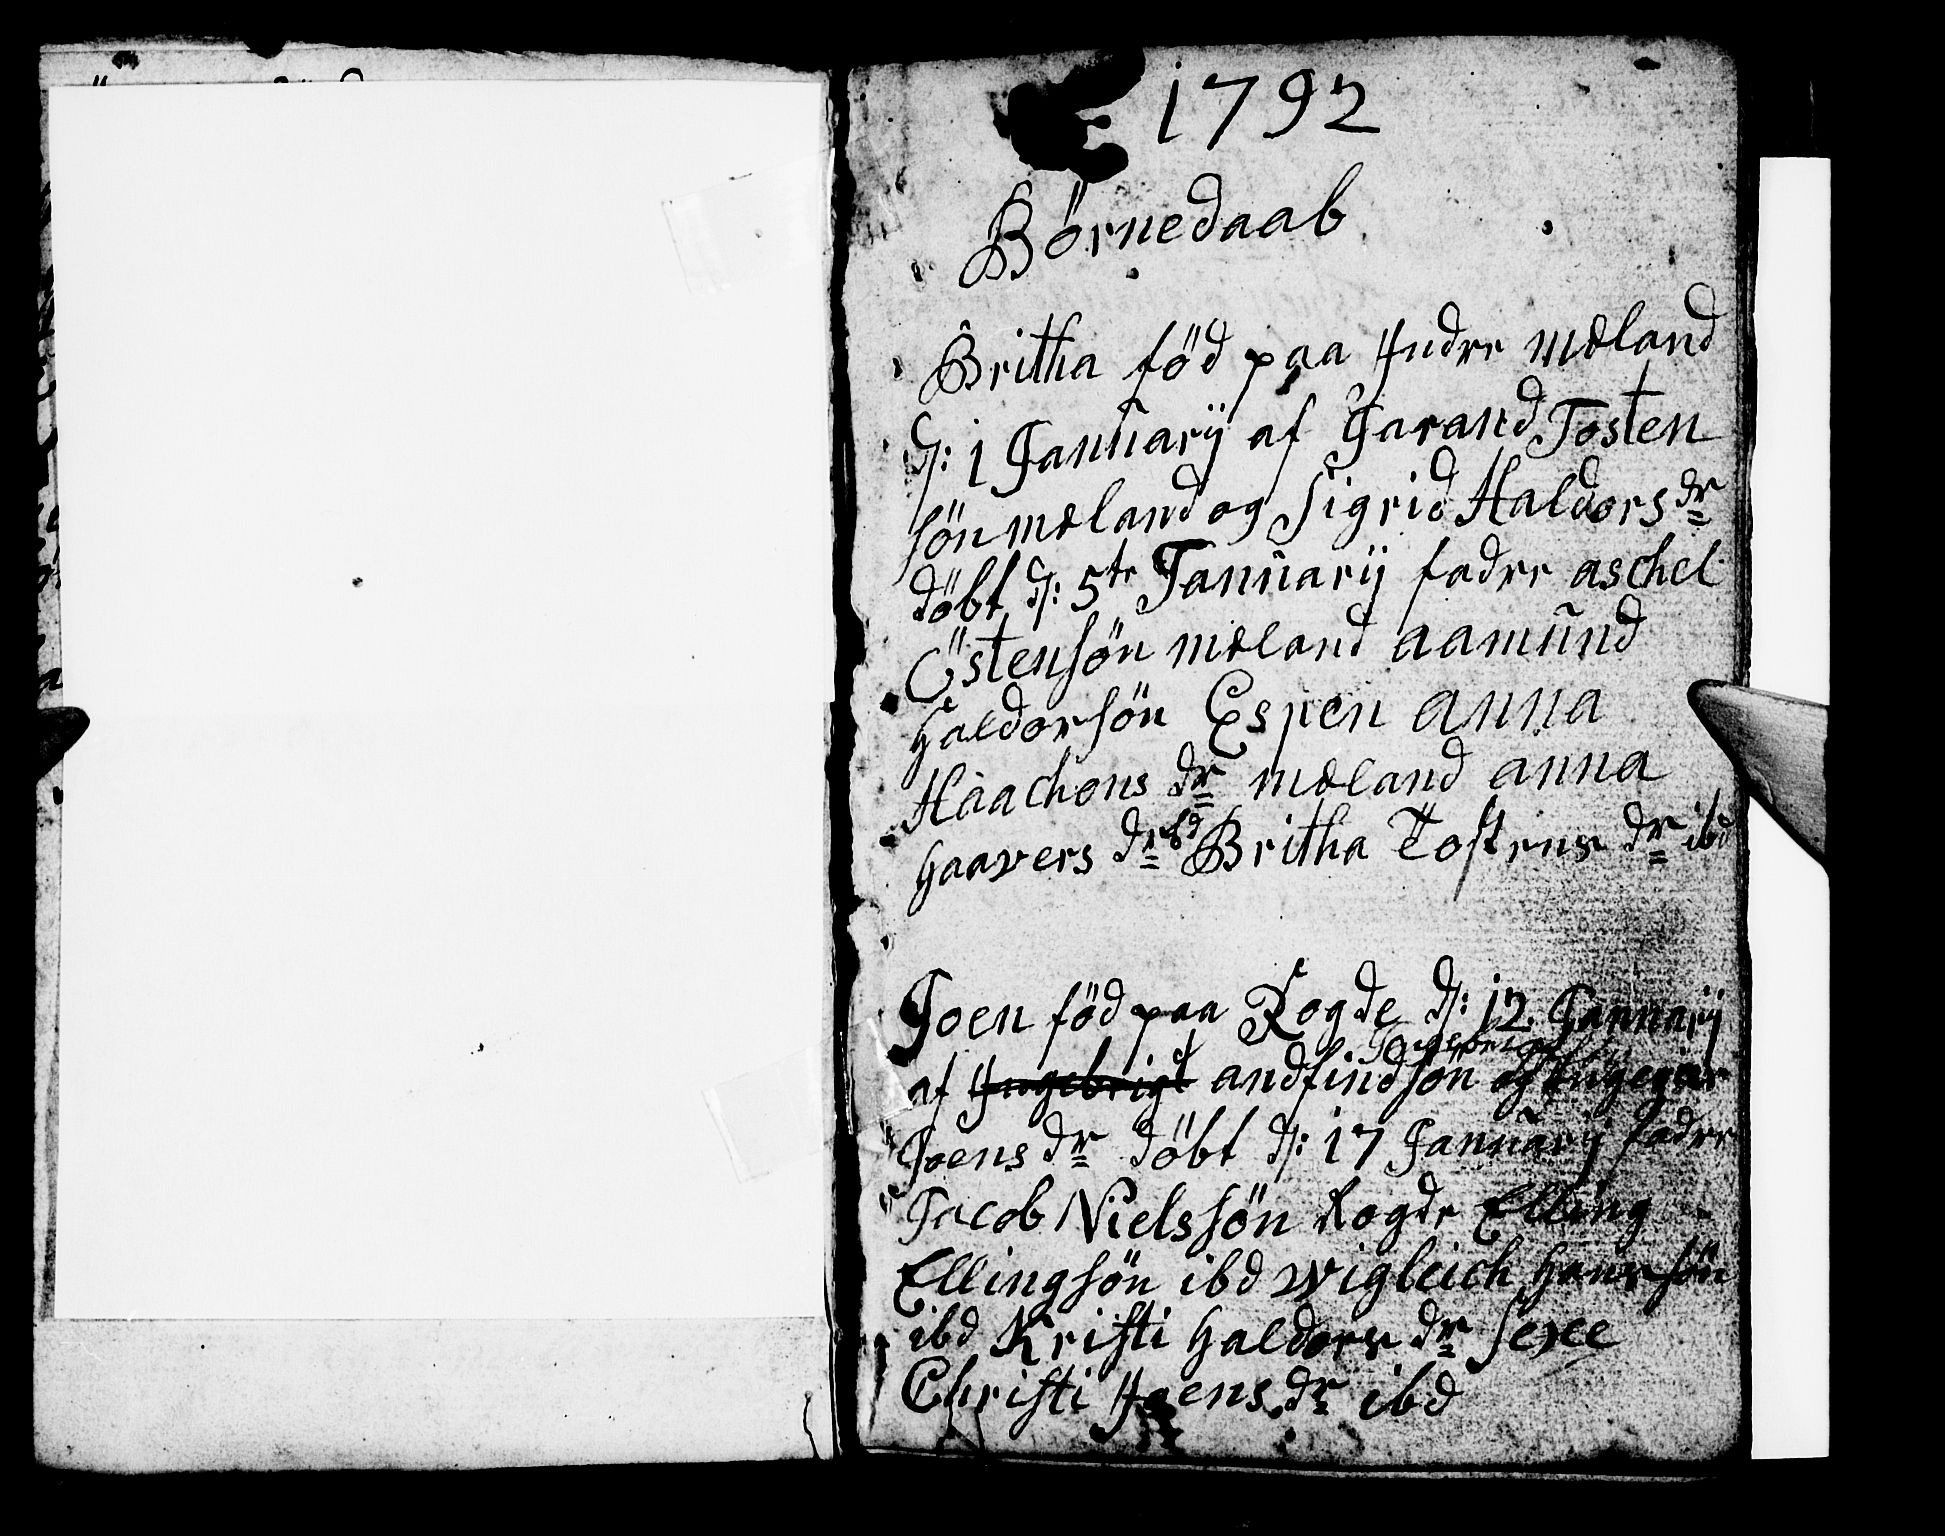 1792
Börnedaab
Britha föd paa Indre mæland
d: 1 Januarij af Jarand Tosten
sön mæland og Sigrid Haldors dr
döbt d: 5te Januarij fadre aschel
Östensön mæland aamund
haldorsön Espen anna
Haachons dr mæland anna
haavers dr ibd Britha Tostens dr ibd
Joen föd paa Rogde d: 12 Januarij
af Ingebrigt andfindsön og
Joens dr döbt d: 17 Januarij fadre
Jacob Nielssön Rogde Elling
Ellingsön ibd wigleich hanssön
ibd Kristi haldors dr Sexe
Christi Joens dr ibd